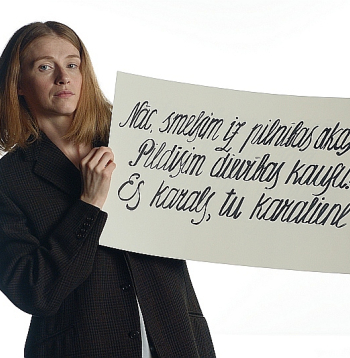 Nāc, smelsim iz pilnības akas
Pildīsim dievības kausu.
Es karals, tu karaliene